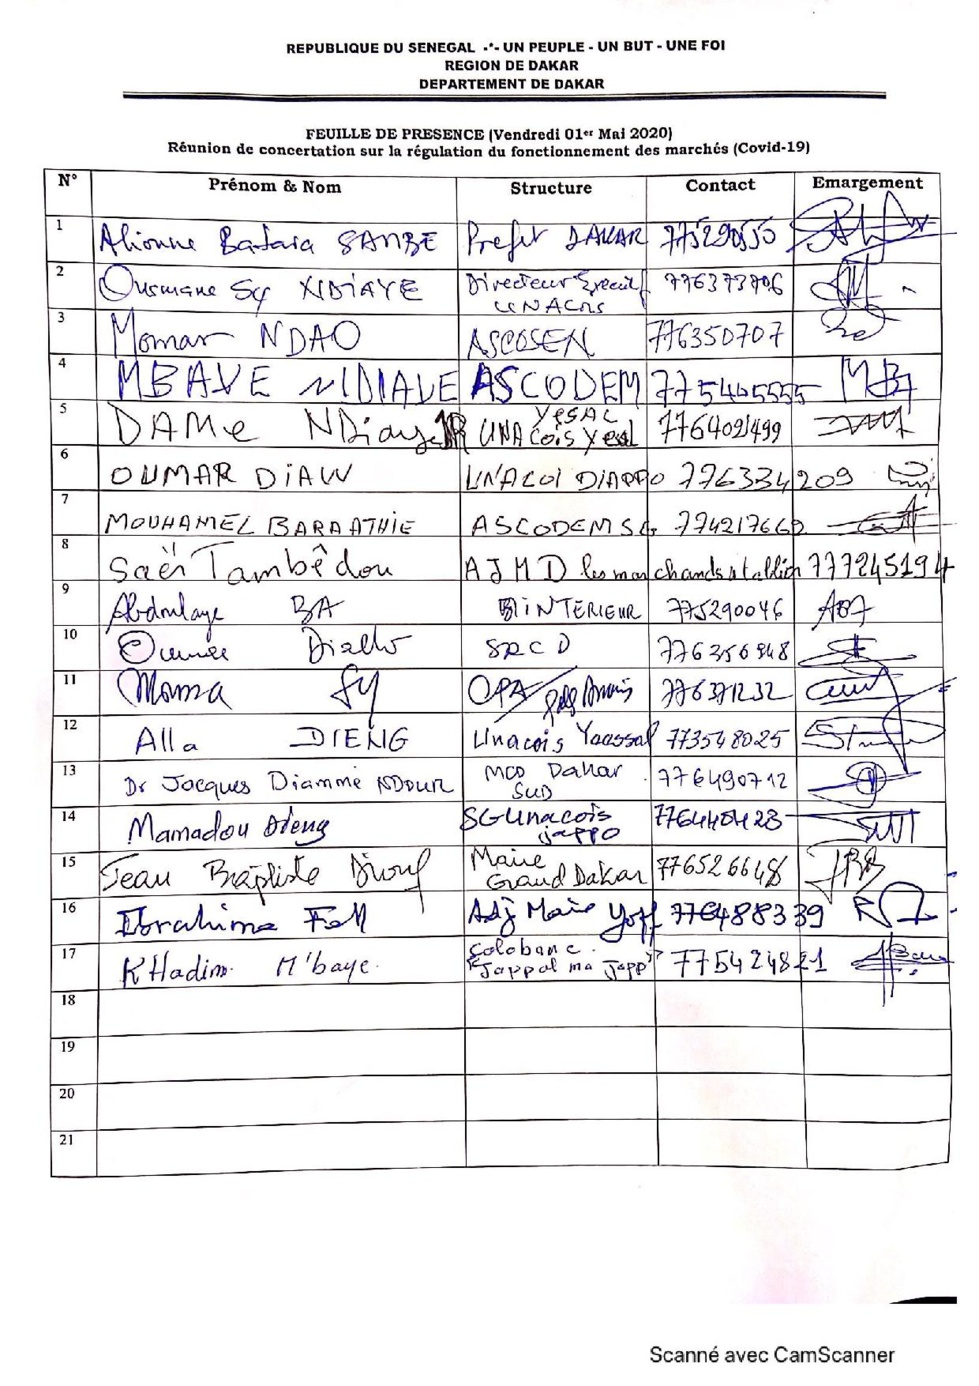 REPUBLIQUE DU SENEGAL -*- UN PEUPLE - UN BUT - UNE FOI
REGION DE DAKAR
DEPARTEMENT DE DAKAR
FEUILLE DE PRESENCE (Vendredi 01er Mai 2020)
Réunion de concertation sur la régulation du fonctionnement des marchés (Covid-19)
N° Prénom & Nom Structure Contact Emargement
1 Alioune Badara SAMBE Préfet DAKAR
2 Ousmane Sy NDIAYE Directeur Exécutif
UNACOIS
3 Momar NDAO ASCOSEN 776350707
4 MBAYE NDIAYE ASCODEM
5 DAMe NDiaye UNACOIS Yessal 776409499
6 OUMAR DIAW UNACOI DIAPPO 776334209
7 MOUHAMED BARA ATHIE ASCODEM SG 774217662
8 Saër Tambédou AJMD les marchands tabliers 777245194
9 Abdoulaye BA INTERIEUR 775290046
10 Diallo SRCD 776356848
11 Sy OPA 776371232
12 Alla DIENG Unacois Yaassal 773548025
13 Dr Jacques Diamme NDOUR MCD Dakar
SUD 776490712
14 Mamadou Dieng SG Unacois
jappo
15 Jean Baptiste Diouf Maire
Grand Dakar 776526648
16 Ibrahima Fall Adj Maire Yoff 776488339
17 KHadim M'baye Colobane
"Jappal ma Japp" 775424821
18
19
20
21
Scanné avec CamScanner